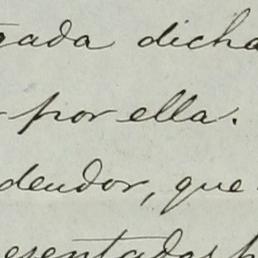 gada dicha
por ella.
deudor, que
esentados p